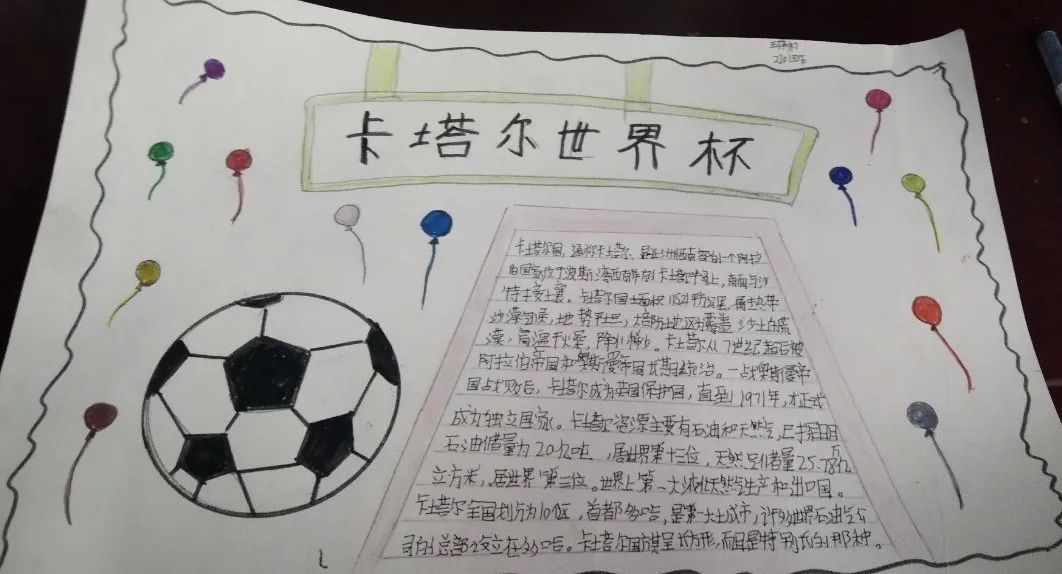 2101班
卡塔尔世界杯
卡塔尔国,通称卡塔尔,是亚洲西南部的一个阿拉
伯国家,位于波斯湾西南岸的卡塔尔半岛上,南面与沙
特接壤。卡塔尔国土面积11521平方公里,属热带
沙漠气候,地势平坦,大部分地区为覆盖沙土的荒
漠,高温干燥,降水稀少。卡塔尔从7世纪起后被
阿拉伯帝国和奥斯曼帝国长期统治。一战奥斯曼帝
国战败后,卡塔尔成为英国保护国,直至1971年,才正式
成为独立国家。卡塔尔资源主要有石油和天然气,已探明
石油储量为20亿吨,居世界第十三位,天然气储量25.78万亿
立方米,居世界第三位。世界上第一大液化天然气生产和出口国。
卡塔尔全国划分为10个区,首都多哈,是第一大城市,许多世界石油公
司的总部设立在多哈。卡塔尔国旗呈长方形,而且是特别长的那种。